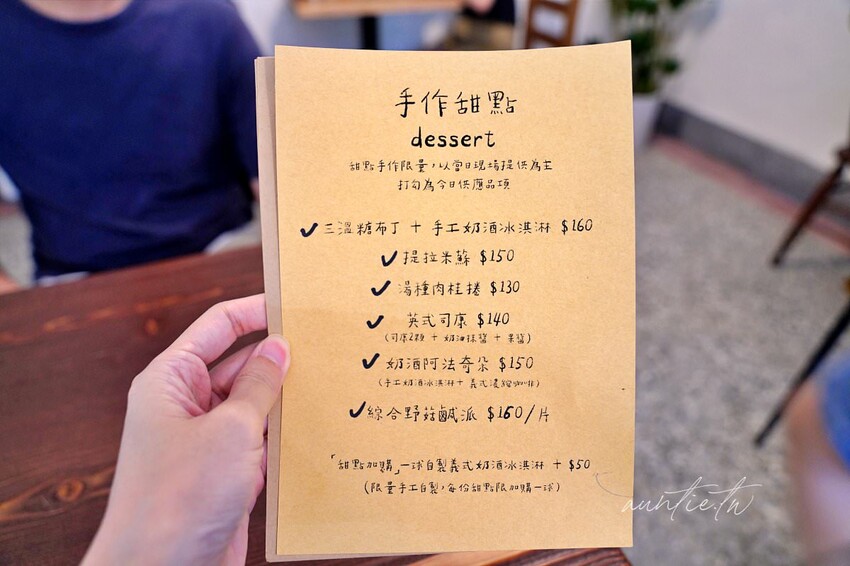 手作甜點
dessert
甜點手作限量，以當日現場提供為主
打勾為今日供應品項
三溫糖布丁 + 手工奶酒冰淇淋 $160
提拉米蘇 $150
湯種肉桂捲 $130
英式司康 $140
(司康2顆 + 奶油抹醬 + 果醬)
奶酒阿法奇朵 $150
(手工奶酒冰淇淋 + 義式濃縮咖啡)
綜合野菇鹹派 $160/片
「甜點加購」一球自製義式奶酒冰淇淋 + $50
(限量手工自製，每份甜點限加購一球)
auntie.tw